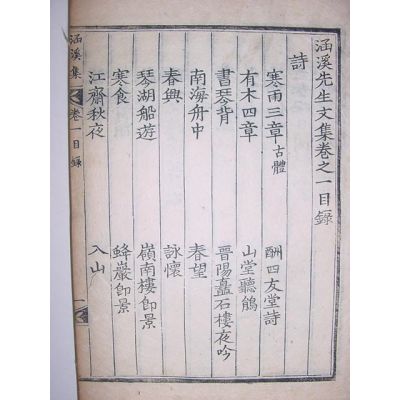 涵溪先生文集卷之一目錄
詩
寒雨三章古體 酬四友堂詩
有木四章 山堂聽鵑
書琴背 晋陽矗石樓夜吟
南海舟中 春望
春興 詠懷
琴湖船遊 嶺南樓卽景
寒食 蜂巖卽景
江齋秋夜 入山
涵溪集 卷一目錄 一